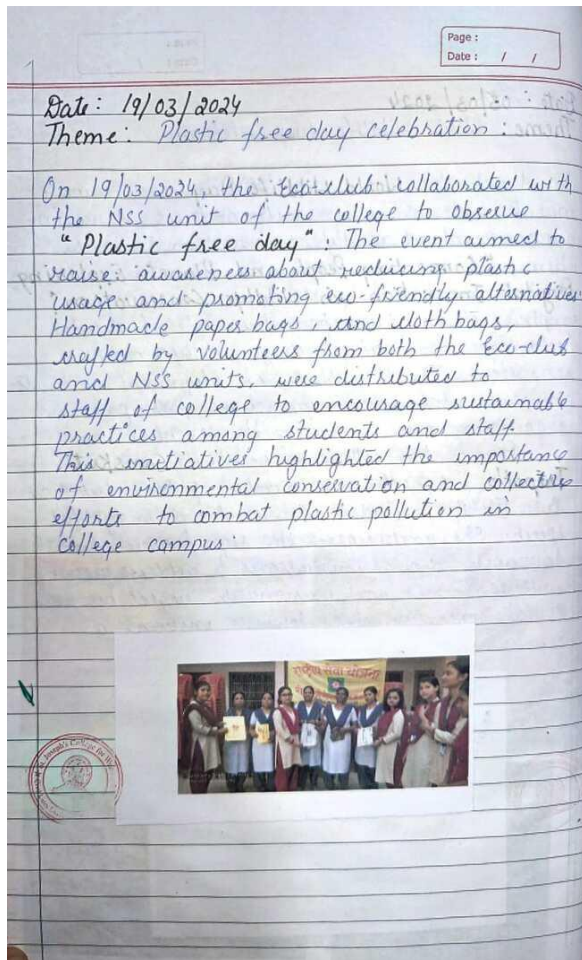 Page :
Date : / /
Date: 19/03/2024
Theme: Plastic free day celebration :
On 19/03/2024, the Eco-club collaborated with
the NSS unit of the college to observe
"Plastic free day": The event aimed to
raise awareness about reducing plastic
usage and promoting eco-friendly alternatives
Handmade paper bags, and cloth bags,
crafted by volunteers from both the Eco-club
and NSS units, were distributed to
staff of college to encourage sustainable
practices among students and staff.
This initiatives highlighted the importance
of environmental conservation and collective
efforts to combat plastic pollution in
college campus.
राष्ट्रीय सेवा योजना
Joseph's College for